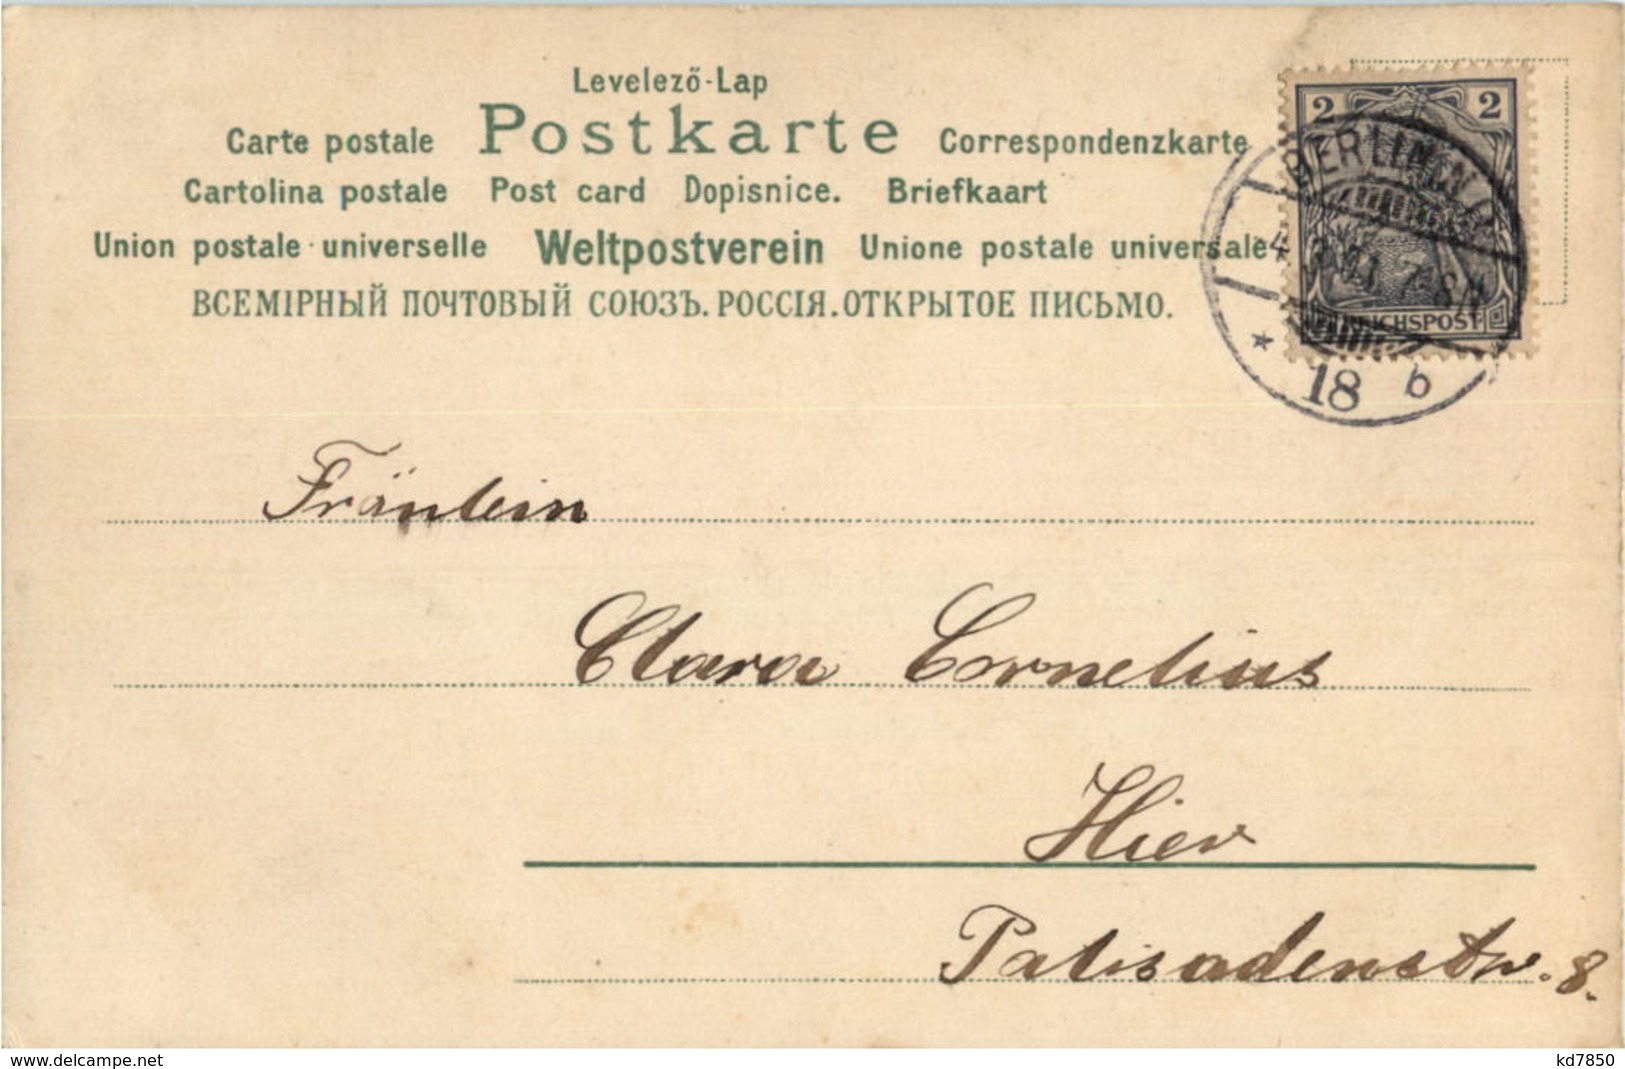 Levelező-Lap
Carte postale Postkarte Correspondenzkarte
Cartolina postale Post card Dopisnice. Briefkaart
Union postale universelle Weltpostverein Unione postale universale
ВСЕМІРНЫЙ ПОЧТОВЫЙ СОЮЗЪ. РОССІЯ. ОТКРЫТОЕ ПИСЬМО.
2 2
BERLIN
REICHSPOST
18 b
Fräulein
Clara Cornelius
Hier
Palisadenstr. 8.
www.delcampe.net
kd7850